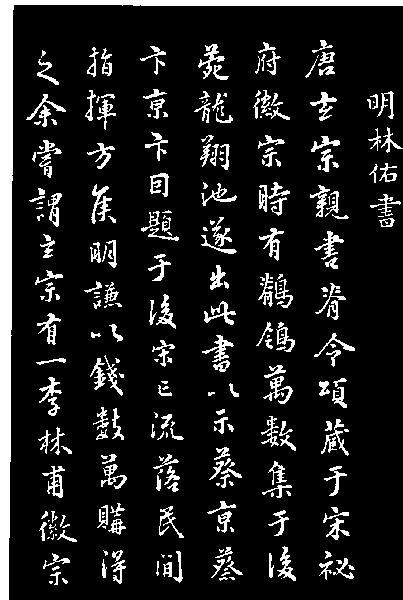 明林佑書
唐玄宗親書脊令頌藏于宋祕
府徽宗時有鶺鴒萬數集于後
苑龍翔池遂出此書以示蔡京蔡
卞京卞囙題于後宋亡流落民間
指揮方矦明謙以錢數萬購得
之余嘗謂玄宗有一李林甫徽宗